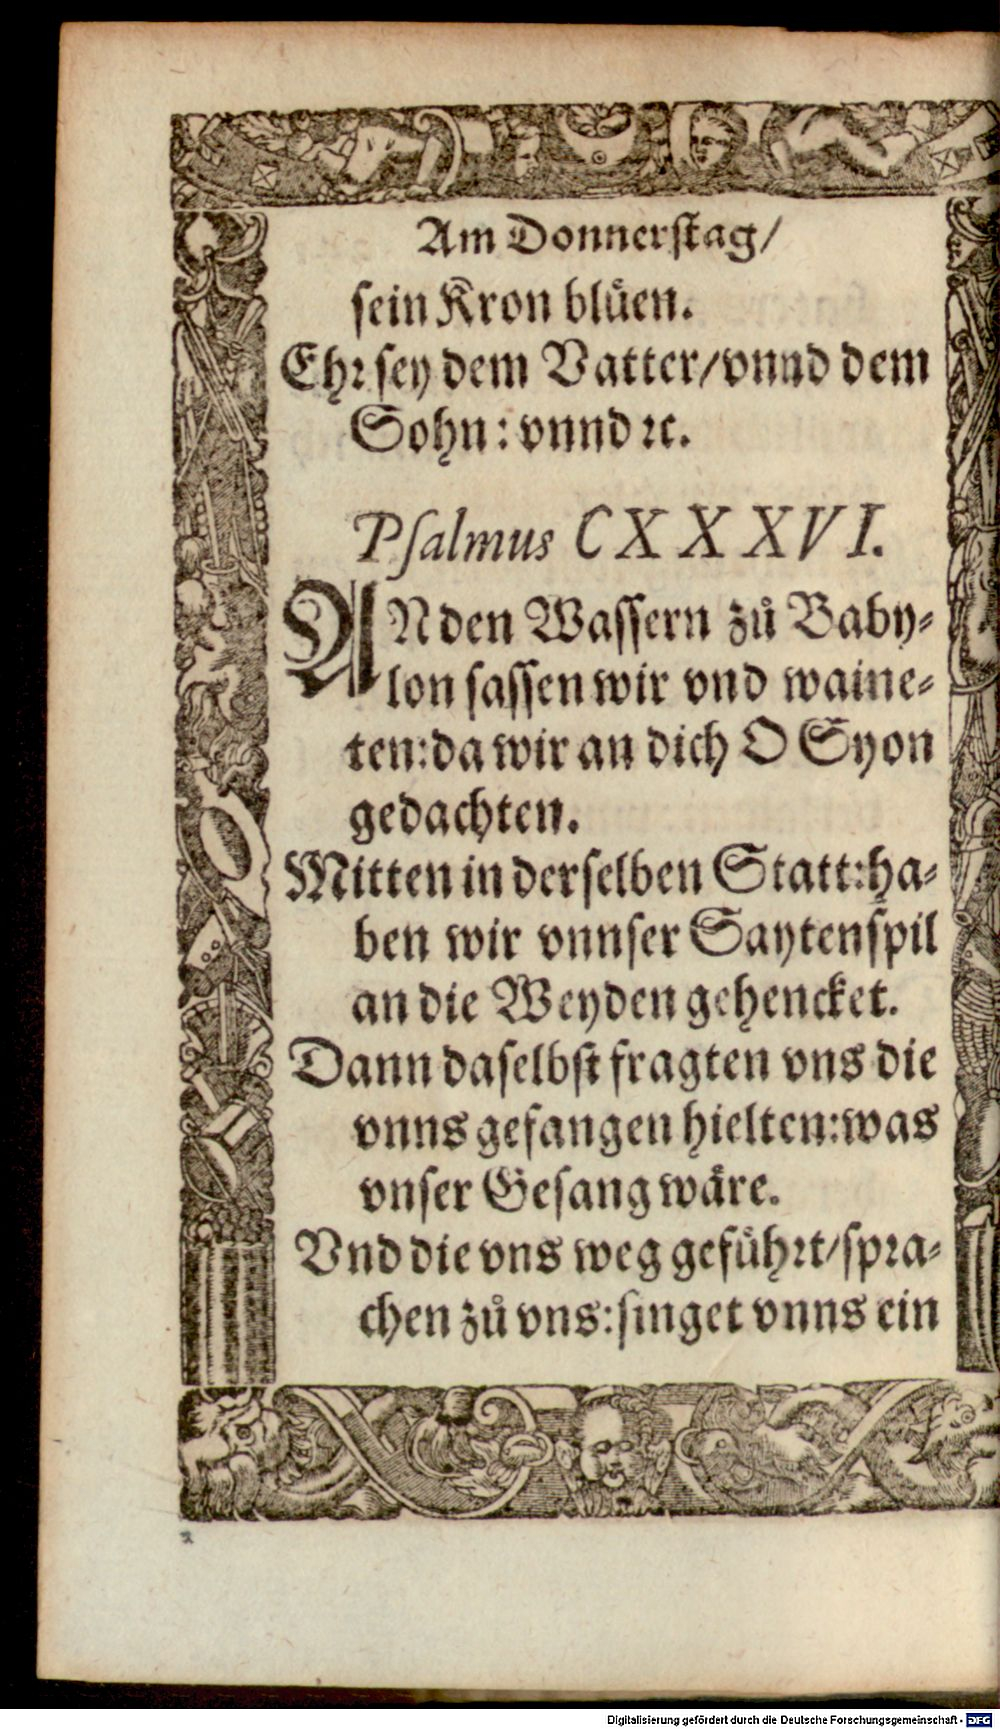 Am Donnerſtag/
ſein Kron bluͤen.
Ehꝛ ſey dem Vatter/vnnd dem
Sohn: vnnd ꝛc.
Pſalmus CXXXVI.
AN den Waſſern zuͦ Baby⸗
lon ſaſſen wir vnd waine⸗
ten: da wir an dich O Syon
gedachten.
Mitten in derſelben Statt: ha⸗
ben wir vnnſer Saytenſpil
an die Weyden gehencket.
Dann daſelbſt fragten vns die
vnns gefangen hielten: was
vnſer Geſang waͤre.
Vnd die vns weg gefuͤhꝛt/ſpꝛa⸗
chen zuͦ vns: ſinget vnns ein
Digitalisierung gefördert durch die Deutsche Forschungsgemeinschaft - DFG